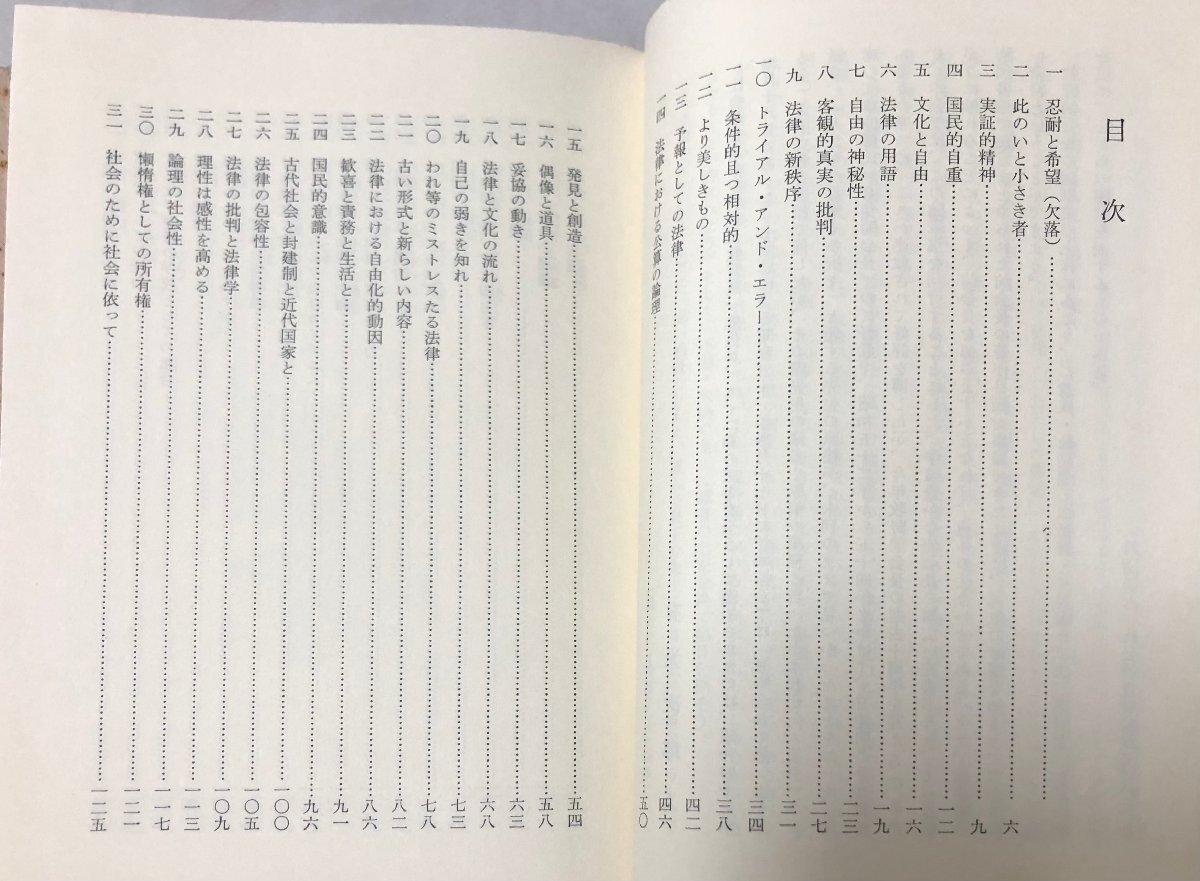 目次
一 忍耐と希望（欠落）……
二 此のいと小さき者……六
三 実証的精神……九
四 国民的自重……一二
五 文化と自由……一六
六 法律の用語……一九
七 自由の神秘性……二三
八 客観的真実の批判……二七
九 法律の新秩序……三一
一〇 トライアル・アンド・エラー……三四
一一 条件的且つ相対的……三八
一二 より美しきもの……四二
一三 予報としての法律……四六
一四 法律における公算の論理……五〇
一五 発見と創造……五四
一六 偶像と道具……五八
一七 妥協の動き……六三
一八 法律と文化の流れ……六八
一九 自己の弱きを知れ……七三
二〇 われ等のミストレスたる法律……七八
二一 古い形式と新らしい内容……八二
二二 法律における自由化的動因……八六
二三 歓喜と責務と生活と……九一
二四 国民的意識……九六
二五 古代社会と封建制と近代国家と……一〇〇
二六 法律の包容性……一〇五
二七 法律の批判と法律学……一〇九
二八 理性は感性を高める……一一三
二九 論理の社会性……一一七
三〇 懶惰権としての所有権……一二一
三一 社会のために社会に依って……一二五